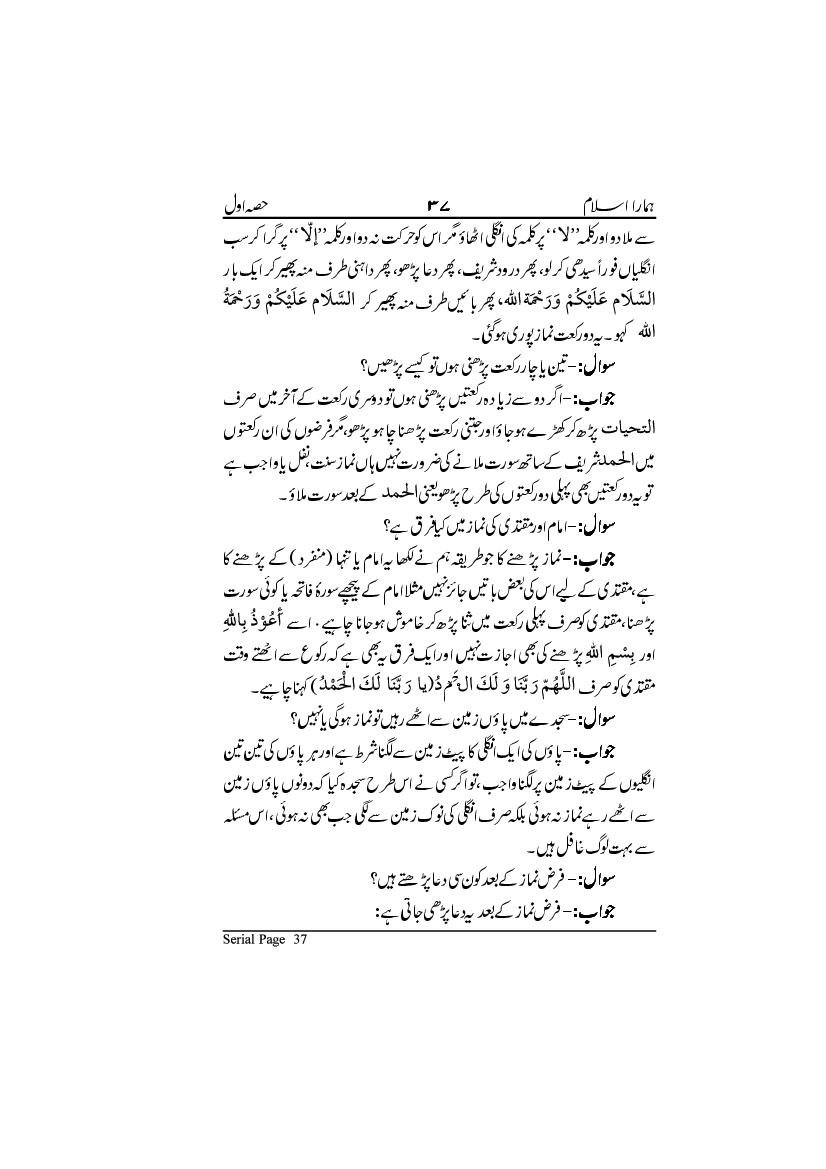 ہمارا اسلام ۳۷ حصہ اول
سے ملا دو اور کلمہ ’’لا‘‘ پر کلمہ کی انگلی اٹھاؤ مگر اس کو حرکت نہ دو اور کلمہ ’’إلّا‘‘ پر گرا کر سب
انگلیاں فوراً سیدھی کر لو، پھر درود شریف، پھر دعا پڑھو، پھر داہنی طرف منہ پھیر کر ایک بار
السَّلَام عَلَيْكُمْ وَرَحْمَة الله، پھر بائیں طرف منہ پھیر کر السَّلَام عَلَيْكُمْ وَرَحْمَةُ
الله کہو۔ یہ دو رکعت نماز پوری ہو گئی۔
سوال:- تین یا چار رکعت پڑھنی ہوں تو کیسے پڑھیں؟
جواب:- اگر دو سے زیادہ رکعتیں پڑھنی ہوں تو دوسری رکعت کے آخر میں صرف
التحیات پڑھ کر کھڑے ہو جاؤ اور جتنی رکعت پڑھنا چاہو پڑھو، مگر فرضوں کی ان رکعتوں
میں الحمد شریف کے ساتھ سورت ملانے کی ضرورت نہیں ہاں نماز سنت، نفل یا واجب ہے
تو یہ دو رکعتیں بھی پہلی دو رکعتوں کی طرح پڑھو یعنی الحمد کے بعد سورت ملاؤ۔
سوال:- امام اور مقتدی کی نماز میں کیا فرق ہے؟
جواب:- نماز پڑھنے کا جو طریقہ ہم نے لکھا یہ امام یا تنہا (منفرد) کے پڑھنے کا
ہے، مقتدی کے لیے اس کی بعض باتیں جائز نہیں مثلا امام کے پیچھے سورۂ فاتحہ یا کوئی سورت
پڑھنا، مقتدی کو صرف پہلی رکعت میں ثنا پڑھ کر خاموش ہو جانا چاہیے۔ اسے أَعُوْذُ بِاللّٰهِ
اور بِسْمِ اللّٰهِ پڑھنے کی بھی اجازت نہیں اور ایک فرق یہ بھی ہے کہ رکوع سے اٹھتے وقت
مقتدی کو صرف اللّٰهُمّ رَبَّنَا وَ لَكَ الْحَمْدُ (یا رَبَّنَا لَكَ الْحَمْدُ) کہنا چاہیے۔
سوال:- سجدے میں پاؤں زمین سے اٹھے رہیں تو نماز ہوگی یا نہیں؟
جواب:- پاؤں کی ایک انگلی کا پیٹ زمین سے لگنا شرط ہے اور ہر پاؤں کی تین تین
انگلیوں کے پیٹ زمین پر لگنا واجب، تو اگر کسی نے اس طرح سجدہ کیا کہ دونوں پاؤں زمین
سے اٹھے رہے نماز نہ ہوئی بلکہ صرف انگلی کی نوک زمین سے لگی جب بھی نہ ہوئی، اس مسئلہ
سے بہت لوگ غافل ہیں۔
سوال:- فرض نماز کے بعد کون سی دعا پڑھتے ہیں؟
جواب:- فرض نماز کے بعد یہ دعا پڑھی جاتی ہے:
Serial Page 37